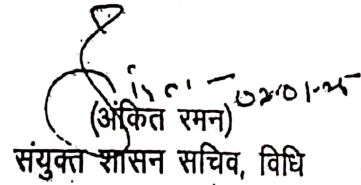 02.01.25
(अंकित रमन)
संयुक्त शासन सचिव, विधि